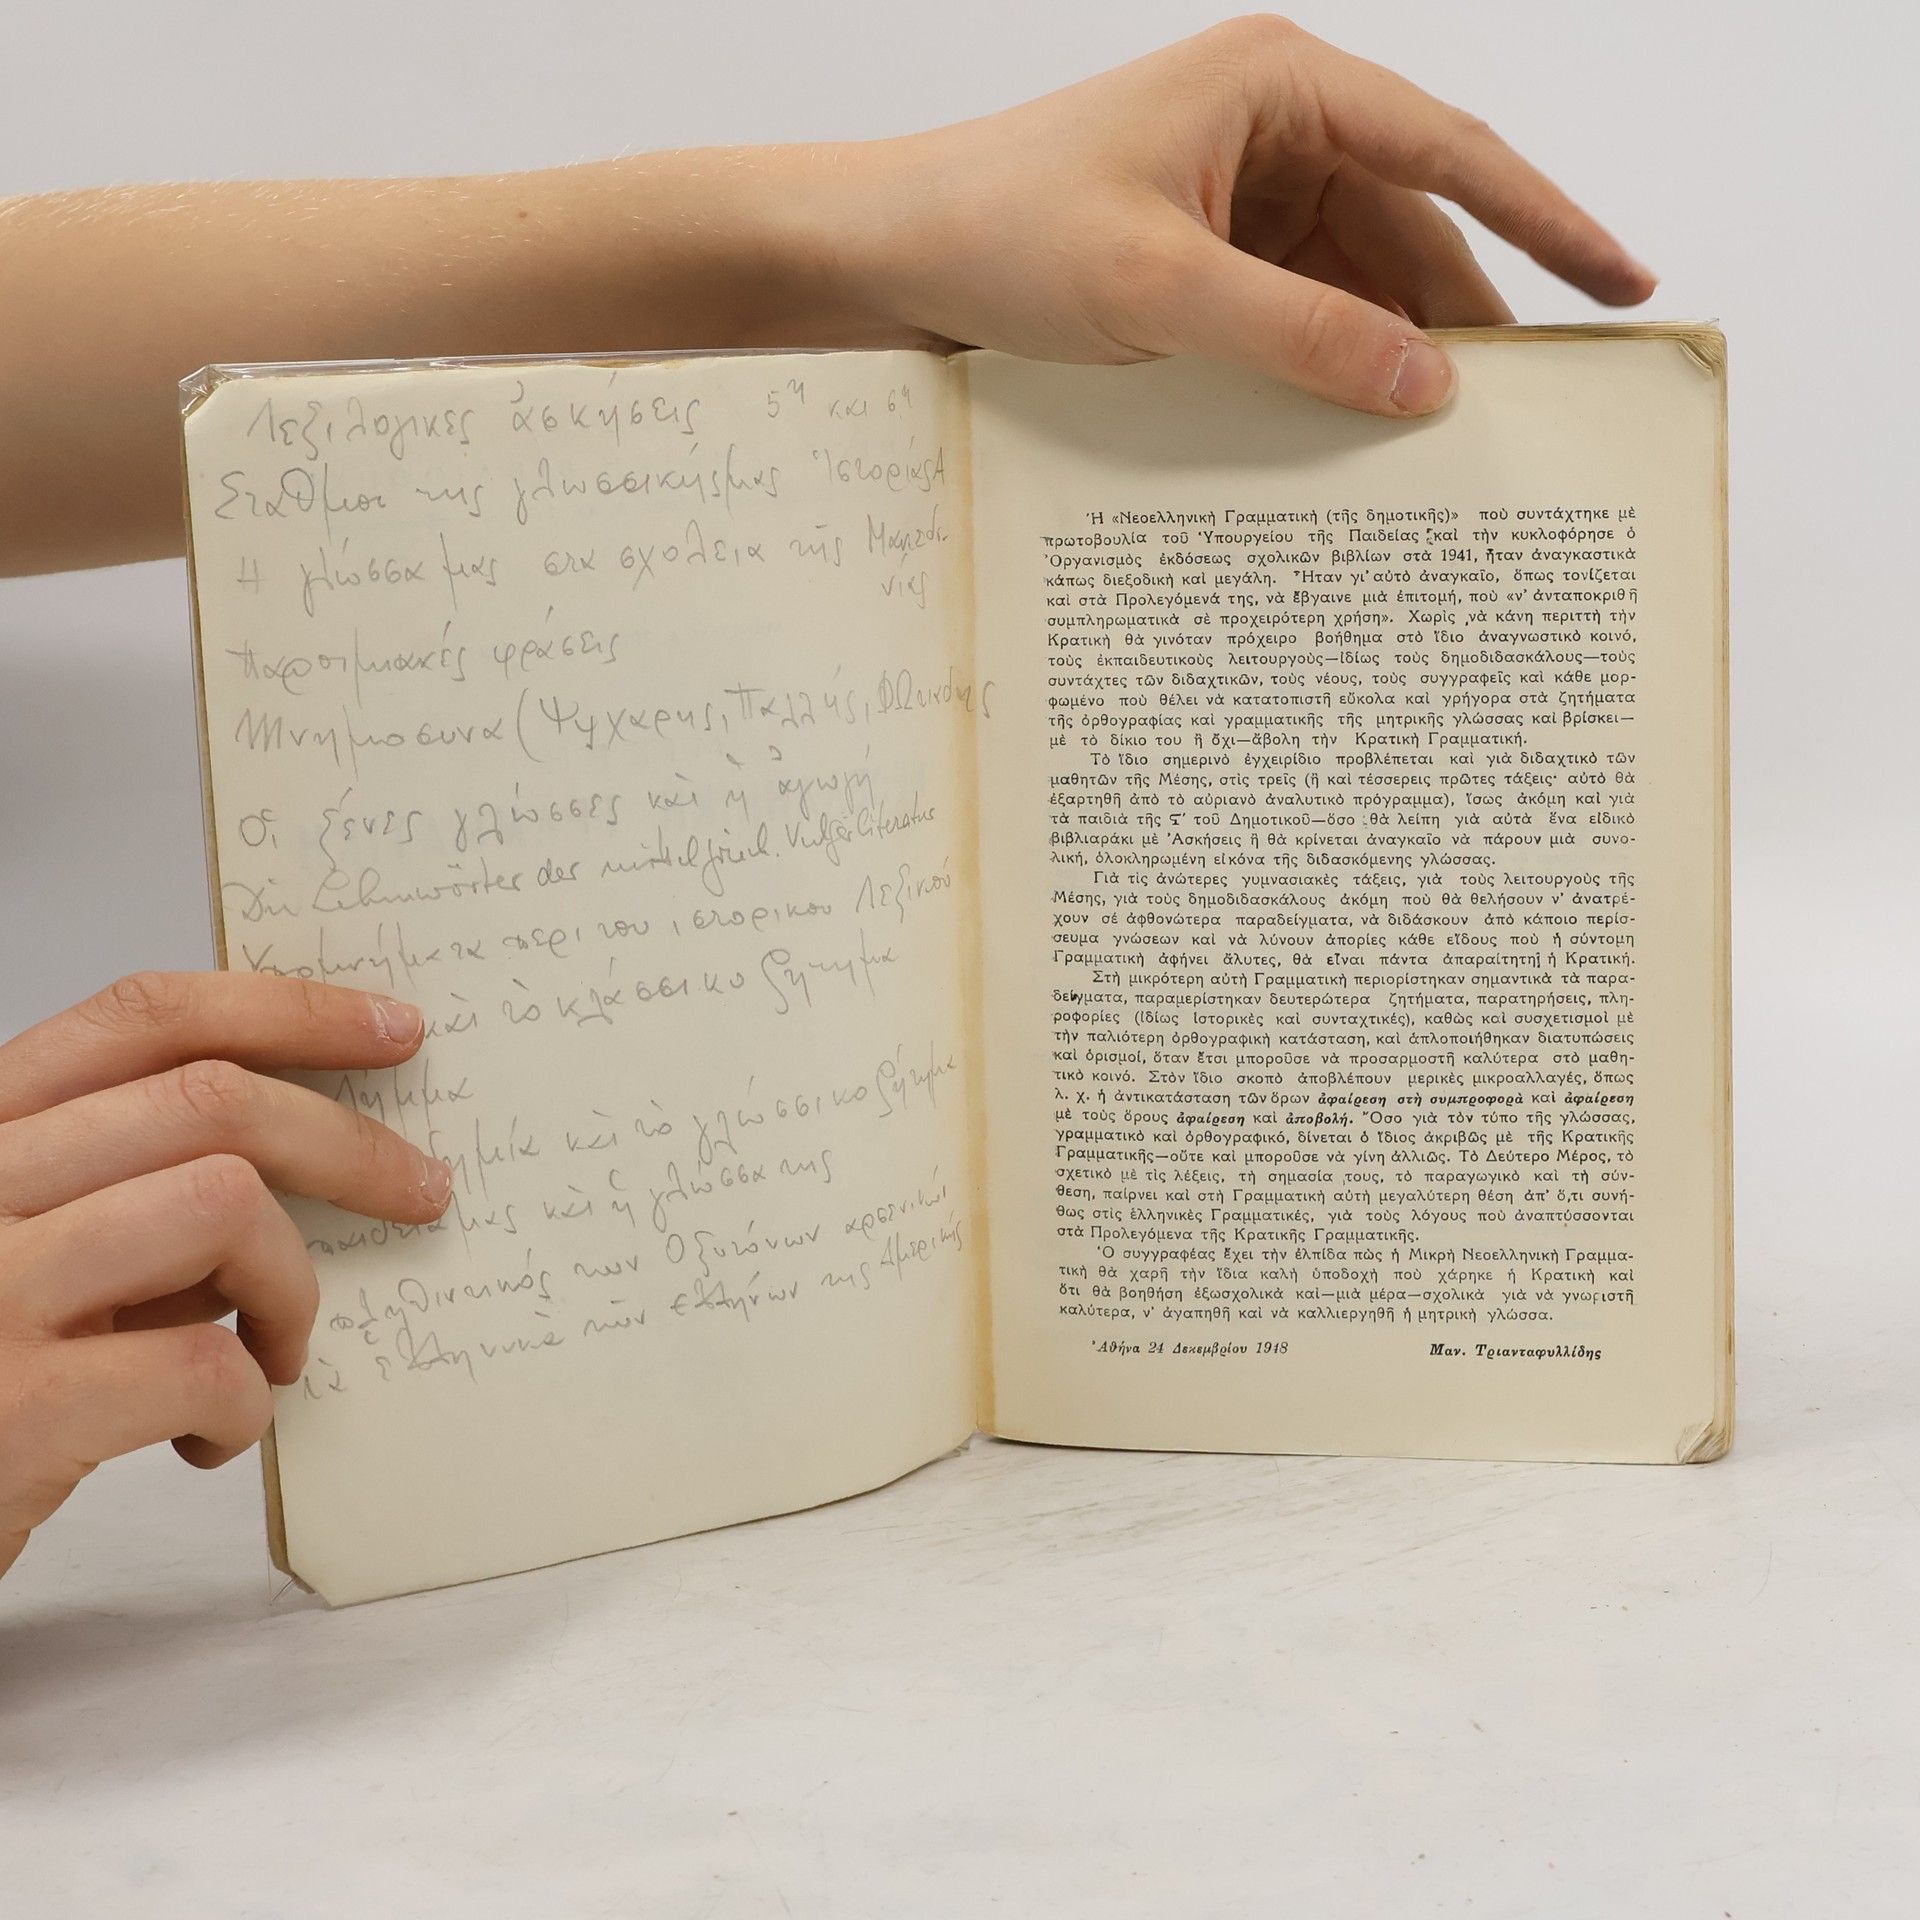 Λεξιλογικες ἀσκήσεις 5η και 6η
Σταθμοι της γλωσσικής μας Ἱστορίας Α
Η γλώσσα μας στα σχολεια τῆς Μακεδο-
νίας
Παροιμιακές φράσεις
Μνημοσυνα (Ψυχαρης, Παλλής, Φωτιαδης
Οἱ ξένες γλώσσες καὶ ἡ ἀγωγή
Die Lehnwörter der mittelgriech. Vulgärliteratur
Υπομνήματα περι του ιστορικου Λεξικού
καὶ τὸ γλωσσικο ζήτημα
Λήμμα
καὶ τὸ γλωσσικο ζήτημα
παιδεία μας καὶ ἡ γλώσσα της
πληθυντικός των Οξυτόνων αρσενικών
Τὰ ἑλληνικὰ τῶν ἑλλήνων της Αμερικής
Ἡ «Νεοελληνικὴ Γραμματικὴ (τῆς δημοτικῆς)» ποὺ συντάχτηκε μὲ
πρωτοβουλία τοῦ Ὑπουργείου τῆς Παιδείας καὶ τὴν κυκλοφόρησε ὁ
Ὀργανισμὸς ἐκδόσεως σχολικῶν βιβλίων στὰ 1941, ἦταν ἀναγκαστικὰ
κάπως διεξοδικὴ καὶ μεγάλη. Ἦταν γι' αὐτὸ ἀναγκαῖο, ὅπως τονίζεται
καὶ στὰ Προλεγόμενά της, νὰ ἔβγαινε μιὰ ἐπιτομή, ποὺ «ν' ἀνταποκριθῆ
συμπληρωματικὰ σὲ προχειρότερη χρήση». Χωρὶς νὰ κάνη περιττὴ τὴν
Κρατικὴ θὰ γινόταν πρόχειρο βοήθημα στὸ ἴδιο ἀναγνωστικὸ κοινό,
τοὺς ἐκπαιδευτικοὺς λειτουργοὺς—ἰδίως τοὺς δημοδιδασκάλους—τοὺς
συντάχτες τῶν διδαχτικῶν, τοὺς νέους, τοὺς συγγραφεῖς καὶ κάθε μορ-
φωμένο ποὺ θέλει νὰ κατατοπιστῆ εὔκολα καὶ γρήγορα στὰ ζητήματα
τῆς ὀρθογραφίας καὶ γραμματικῆς τῆς μητρικῆς γλώσσας καὶ βρίσκει—
μὲ τὸ δίκιο του ἢ ὄχι—ἄβολη τὴν Κρατικὴ Γραμματική.
Τὸ ἴδιο σημερινὸ ἐγχειρίδιο προβλέπεται καὶ γιὰ διδαχτικὸ τῶν
μαθητῶν τῆς Μέσης, στὶς τρεῖς (ἢ καὶ τέσσερεις πρῶτες τάξεις· αὐτὸ θὰ
ἐξαρτηθῆ ἀπὸ τὸ αὐριανὸ ἀναλυτικὸ πρόγραμμα), ἴσως ἀκόμη καὶ γιὰ
τὰ παιδιὰ τῆς Ϛ' τοῦ Δημοτικοῦ—ὅσο θὰ λείπη γιὰ αὐτὰ ἕνα εἰδικὸ
βιβλιαράκι μὲ Ἀσκήσεις ἢ θὰ κρίνεται ἀναγκαῖο νὰ πάρουν μιὰ συνο-
λική, ὁλοκληρωμένη εἰκόνα τῆς διδασκόμενης γλώσσας.
Γιὰ τὶς ἀνώτερες γυμνασιακὲς τάξεις, γιὰ τοὺς λειτουργοὺς τῆς
Μέσης, γιὰ τοὺς δημοδιδασκάλους ἀκόμη ποὺ θὰ θελήσουν ν' ἀνατρέ-
χουν σέ ἀφθονώτερα παραδείγματα, νὰ διδάσκουν ἀπὸ κάποιο περίσ-
σευμα γνώσεων καὶ νὰ λύνουν ἀπορίες κάθε εἴδους ποὺ ἡ σύντομη
Γραμματικὴ ἀφήνει ἄλυτες, θὰ εἶναι πάντα ἀπαραίτητη ἡ Κρατική.
Στὴ μικρότερη αὐτὴ Γραμματικὴ περιορίστηκαν σημαντικὰ τὰ παρα-
δείγματα, παραμερίστηκαν δευτερώτερα ζητήματα, παρατηρήσεις, πλη-
ροφορίες (ἰδίως ἱστορικὲς καὶ συνταχτικές), καθὼς καὶ συσχετισμοὶ μὲ
τὴν παλιότερη ὀρθογραφικὴ κατάσταση, καὶ ἁπλοποιήθηκαν διατυπώσεις
καὶ ὁρισμοί, ὅταν ἔτσι μποροῦσε νὰ προσαρμοστῆ καλύτερα στὸ μαθη-
τικὸ κοινό. Στὸν ἴδιο σκοπὸ ἀποβλέπουν μερικὲς μικροαλλαγές, ὅπως
λ. χ. ἡ ἀντικατάσταση τῶν ὅρων ἀφαίρεση στὴ συμπροφορὰ καὶ ἀφαίρεση
μὲ τοὺς ὅρους ἀφαίρεση καὶ ἀποβολή. Ὅσο γιὰ τὸν τύπο τῆς γλώσσας,
γραμματικὸ καὶ ὀρθογραφικό, δίνεται ὁ ἴδιος ἀκριβῶς μὲ τῆς Κρατικῆς
Γραμματικῆς—οὔτε καὶ μποροῦσε νὰ γίνη ἀλλιῶς. Τὸ Δεύτερο Μέρος, τὸ
σχετικὸ μὲ τὶς λέξεις, τὴ σημασία τους, τὸ παραγωγικὸ καὶ τὴ σύν-
θεση, παίρνει καὶ στὴ Γραμματικὴ αὐτὴ μεγαλύτερη θέση ἀπ' ὅ,τι συνή-
θως στὶς ἑλληνικὲς Γραμματικές, γιὰ τοὺς λόγους ποὺ ἀναπτύσσονται
στὰ Προλεγόμενα τῆς Κρατικῆς Γραμματικῆς.
Ὁ συγγραφέας ἔχει τὴν ἐλπίδα πὼς ἡ Μικρὴ Νεοελληνικὴ Γραμμα-
τικὴ θὰ χαρῆ τὴν ἴδια καλὴ ὑποδοχὴ ποὺ χάρηκε ἡ Κρατικὴ καὶ
ὅτι θὰ βοηθήση ἐξωσχολικὰ καὶ—μιὰ μέρα—σχολικὰ γιὰ νὰ γνωριστῆ
καλύτερα, ν' ἀγαπηθῆ καὶ νὰ καλλιεργηθῆ ἡ μητρικὴ γλῶσσα.
Ἀθήνα 24 Δεκεμβρίου 1948 Μαν. Τριανταφυλλίδης